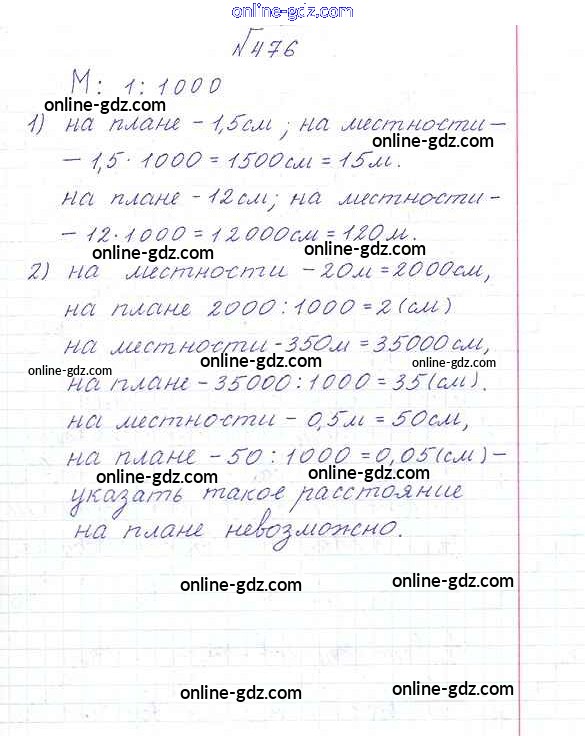 online-gdz.com
online-gdz.com
№476
М: 1:1000
online-gdz.com
1) на плане - 1,5см; на местности-
online-gdz.com
- 1,5 · 1000 = 1500см = 15м.
на плане - 12см; на местности-
- 12·1000 = 12000см = 120м.
online-gdz.com
online-gdz.com
2) на местности - 20м = 2000см,
на плане 2000:1000 = 2 (см)
на местности - 350м = 35000см,
online-gdz.com
online-gdz.com
online-gdz.com
на плане - 35000:1000 = 35(см).
на местности - 0,5м = 50см,
на плане - 50:1000 = 0,05(см)-
online-gdz.com
online-gdz.com
указать такое расстояние
на плане невозможно.
online-gdz.com
online-gdz.com
online-gdz.com
online-gdz.com